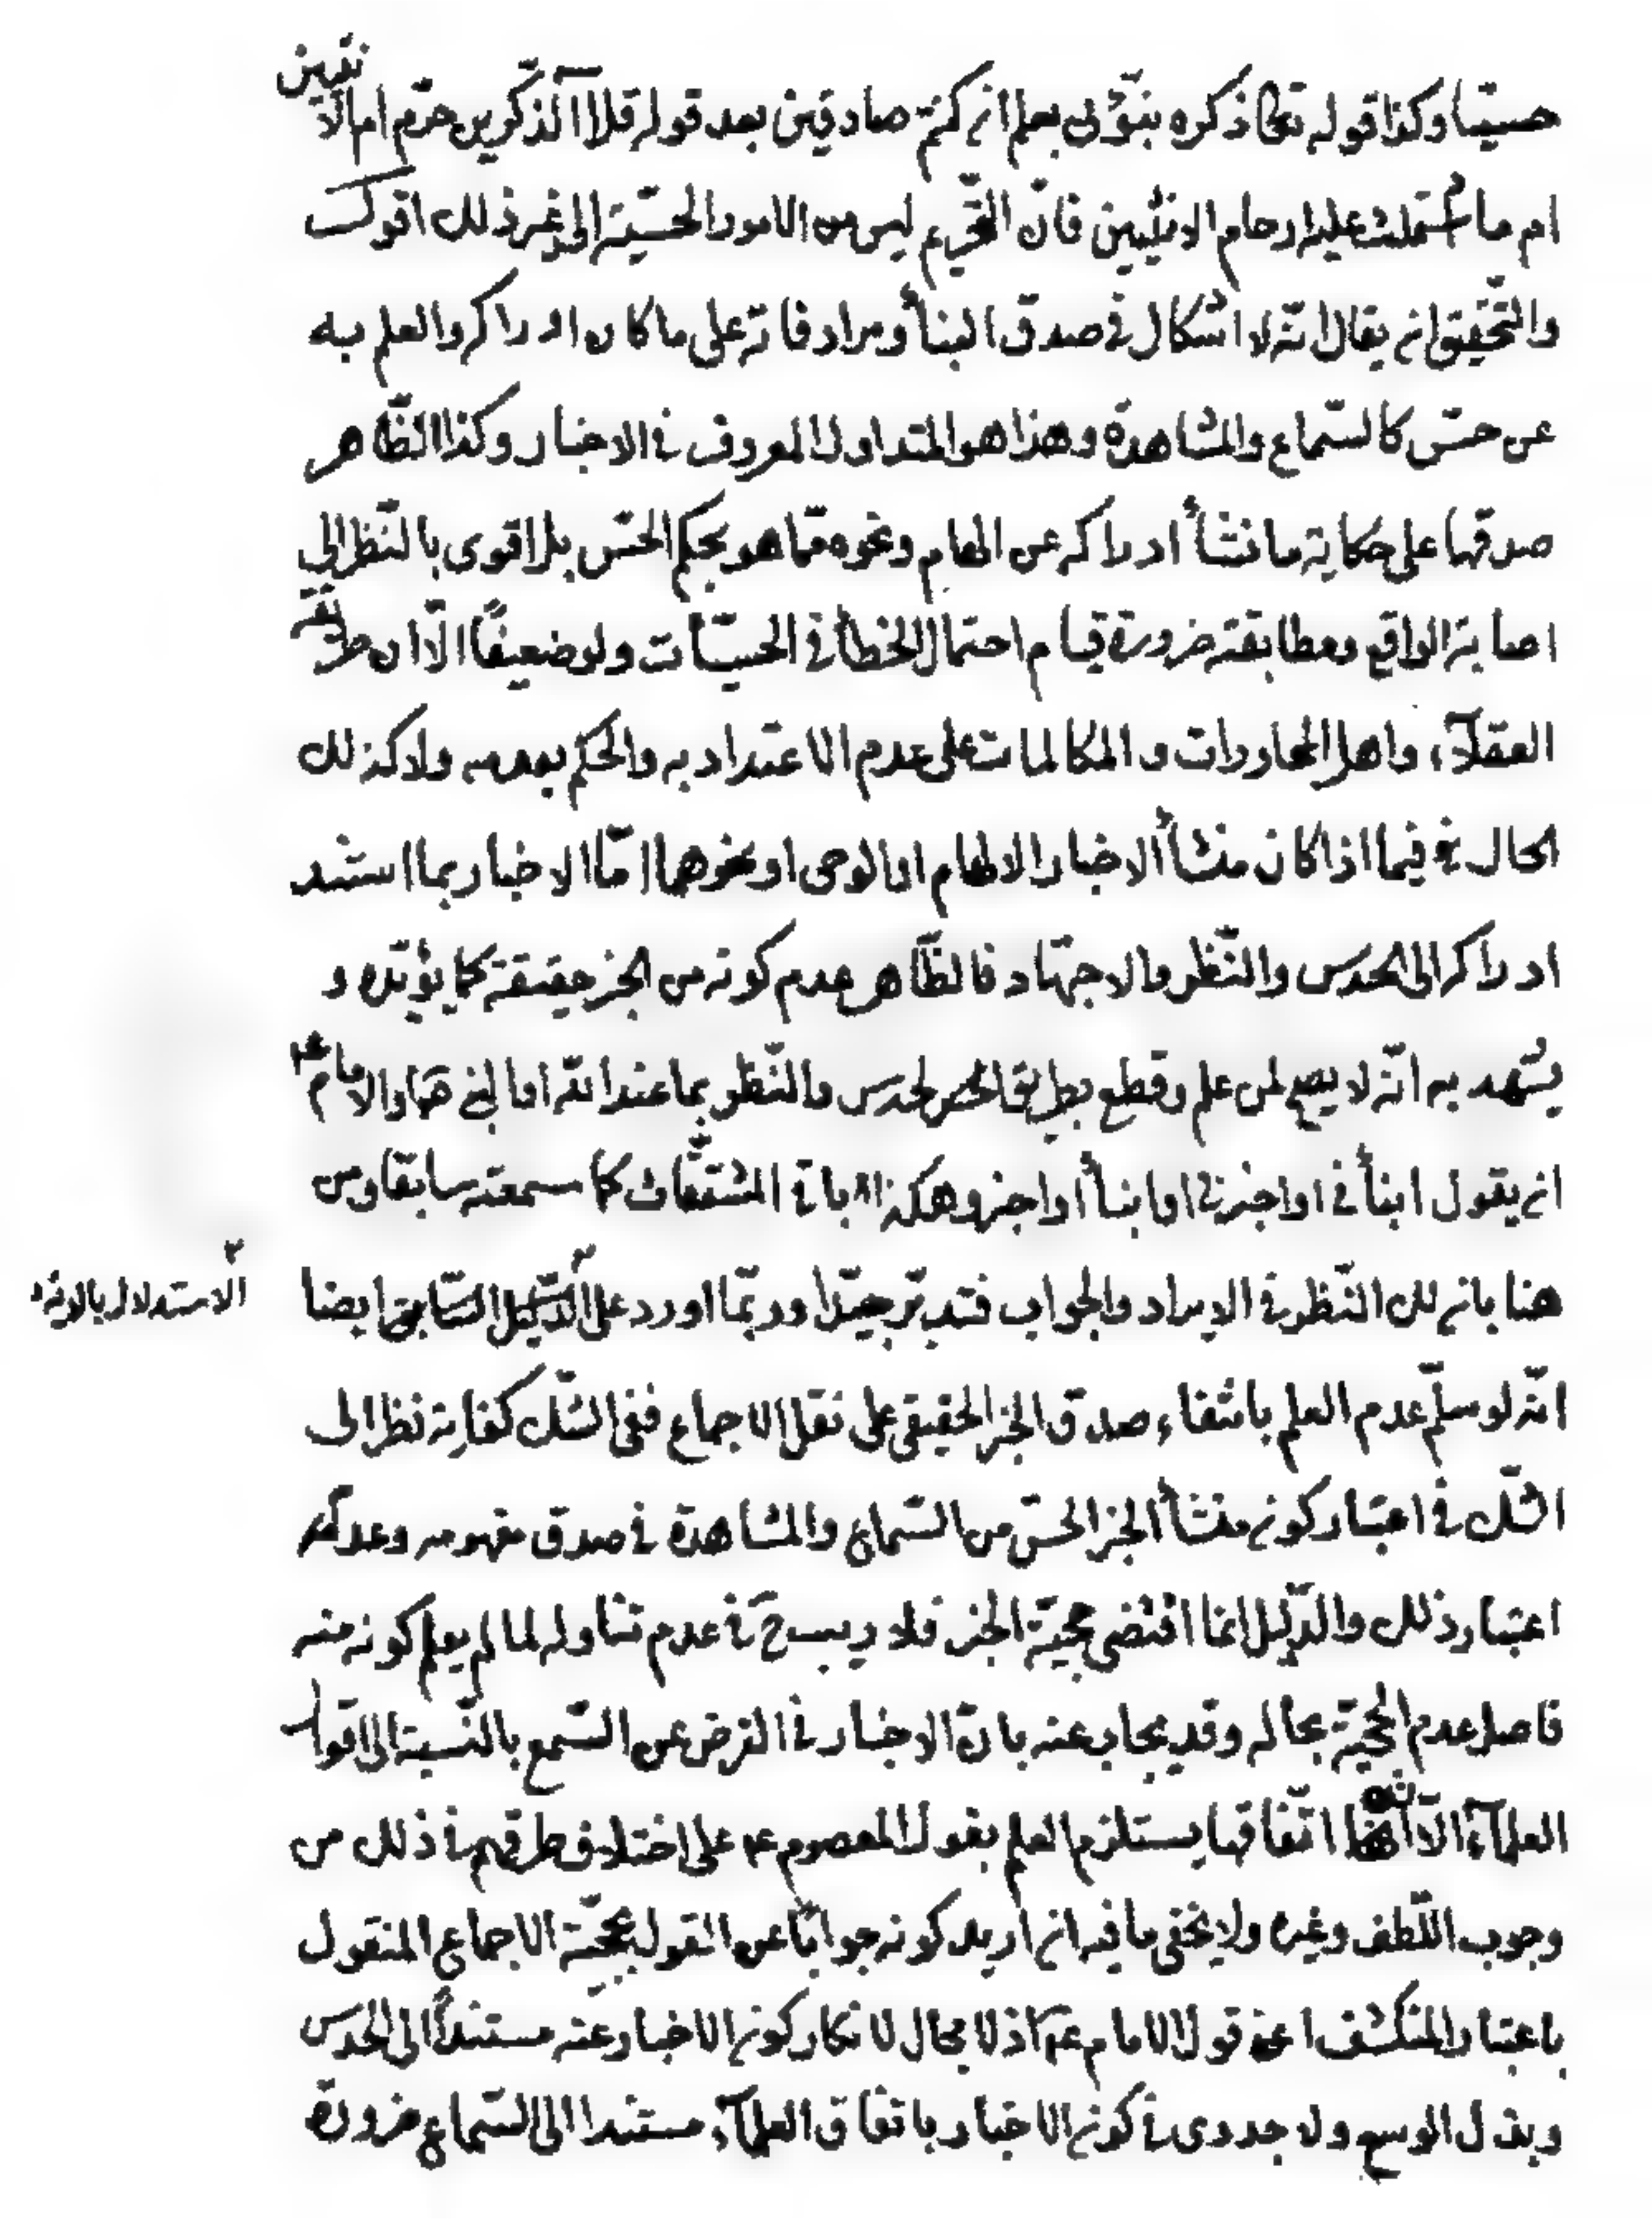 حسيّا وكذا قوله تعا ذكره نبّؤنى بعلم ان كنتم صادقين بعد قوله قل اآلذّكرين حرّم ام الا
نثيين
ام ما اشتملت عليه ارحام الانثيين فانّ التّحريم ليس من الامور الحسيّة الى غير ذلك اقول
والتّحقيق ان يقال انّه لا اشكال فى صدق النبأ ومرادفاته على ما كان ادراكه والعلم به
عن حسّ كالسّماع والمشاهدة وهذا هو المتداول المعروف فى الاخبار وكذا الظّاهر
صدقها على حكاية ما نشأ ادراكه عن الهام ونحوه ممّا هو بحكم الحسّ بل اقوى بالنّظر الى
اصابة الواقع ومطابقته ضرورة قيام احتمال الخطأ فى الحسيّات ولو ضعيفًا الّا ان طريقة
العقلآء واهل المحاورات و المكالمات على عدم الاعتداد به والحكم بعدمه ولا كذلك
الحال فيما اذا كان منشأ الاخبار الالهام او الوحى او نحوهما امّا الاخبار بما استند
ادراكه الى الحدس والنّظر والاجتهاد فالظّاهر عدم كونه من الخبر حقيقة كما يؤيّده و
يشهد به انّه لا يصح لمن علم وقطع بطريق الحدس والنّظر بما عند الله او النبى ص او الامام ع
ان يقول انبأنى او اخبرنى او انبأ او اخبر وهكذا باقى المشتقّات كما سمعته سابقا ومن
هنا بان لك النّظر فى الايراد والجواب فتدبّر جيّدا وربّما اورد على الدّليل السّابق ايضا
الاستدلال بالاية
انّه لو سلّم عدم العلم بانتفاء صدق الخبر الحقيقى على نقل الاجماع ففى الشّك كفاية نظرا الى
الشّك فى اعتبار كون منشأ الخبر الحسّ من السّماع والمشاهدة فى صدق مفهومه وعدم
اعتبار ذلك والدّليل انّما اقتضى حجيّة الخبر فلا ريب ح فى عدم تناوله لما لم يعلم كونه منه
فاصل عدم الحجيّة بحاله وقد يجاب عنه بانّ الاخبار فى الفرض عن السّمع بالنّسبة الى اقوال
العلمآء الّا انّ اتّفاقها يستلزم العلم بقول المعصوم ع على اختلاف طرقهم فى ذلك من
وجوب اللّطف وغيره ولا يخفى ما فيه ان اريد كونه جوابًا عن القول بحجيّة الاجماع المنقول
باعتبار المنكشف اعنى قول الامام ع اذ لا مجال لانكار كون الاخبار عنه مستندًا الى الحدس
وبذل الوسع ولا جدوى فى كون الاخبار باتفاق العلمآء مستندا الى السّماع ضرورة